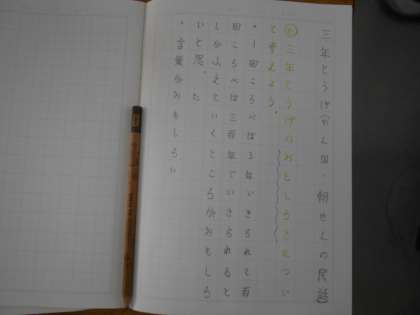 三年とうげ
国・朝せんの民話
三年とうげのおもしろさについ
て考えよう。
・一回ころべば三年いきられて百
回ころべば三百年でいきられると
しかふえていくところがおもしろ
いと思った
・言葉がおもしろい